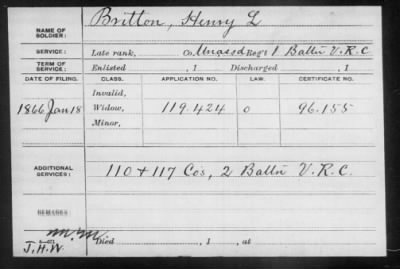 NAME OF SOLDIER: Britton, Henry L
SERVICE: Late rank, Co. Unassd Reg't 1 Batt'n V.R.C.
TERM OF SERVICE: Enlisted , 1 Discharged , 1
DATE OF FILING. CLASS. APPLICATION NO. LAW. CERTIFICATE NO.
Invalid,
1866 Jan 18 Widow, 119.424 0 96.155
Minor,
ADDITIONAL SERVICES: 110 + 117 Cos, 2 Batt'n V.R.C.
REMARKS
M.M.
J.H.W. Died , 1 , at